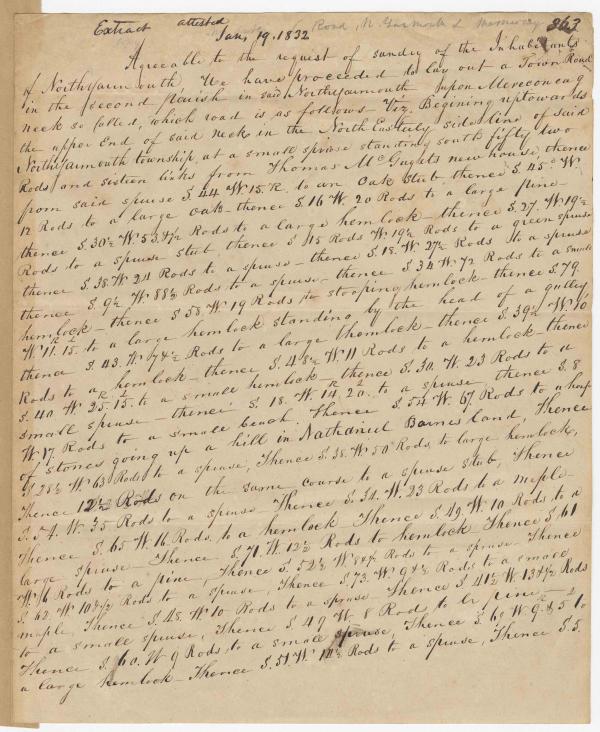 Extract attested Road, N. Yarmouth & 363
Jan, 19. 1832
Agreeable to the request of sundry of the Inhabitants
of North Yarmouth, We have proceeded to lay out a Town Road
in the second Parish in said North Yarmouth upon Mereconeag
neck so called, which road is as follows Viz. Begining uptowards
the upper End of said neck in the North Easterly side line of said
North Yarmouth township, at a small spruse standing south fifty two
Rods and sixteen links from Thomas Mc new house, thence
from said spruse S. 44 W 15. R. to an Oak Stub thence S. 45° W
12 Rods to a large oak - thence S. 16 W. 20 Rods to a large pine -
thence S. 30½ W. 53 Rods to a large hemlock - thence S. 27. W 19½
Rods to a spruse stub, thence S 15 Rods W 19½ Rods to a green spruse
thence S. 38. W 24 Rods to a spruse - thence S. 18. W 27½ Rods to a spruse
thence S. 9½ W 88½ Rods to a spruse - thence S 34 W 72 Rods to a
hemlock - thence S 58 W 19 Rods to stooping hemlock - thence S 79.
W 11. R 15. L to a large hemlock standing by the head of a gulley,
thence S. 43. W 74½ Rods to a large hemlock - thence S 39½ W. 30.
Rods to a hemlock - thence S. 48½ W 11 Rods to a hemlock - thence
S. 40 W 25. R 15. L to a small hemlock - thence S. 30. W. 23 Rods to a
small spruse thence S. 18. W 14. R 20. L to a spruse, thence S. 8
W 17. Rods to a small beach. Thence S. 54 W. 67 Rods to a heap
of stones going up a hill in Nathaniel Barnes land, Thence
S 28½ W. 63 Rods to a spruse, Thence S. 38. W 50 Rods, to large hemlock,
Thence 12½ Rods on the same course to a spruse stub, Thence
S. 54. W. 35 Rods to a spruse Thence S. 34. W. 23 Rods to a maple
Thence S. 65 W. 16. Rods, to a hemlock Thence S. 49. W. 10 Rods to a
large spruse Thence S. 71. W. 12½ Rods to hemlock Thence S. 61
W 16 Rods to a pine, Thence S. 52½ W Rods to a spruse Thence
S. 62. W 10 Rods to a spruse, Thence S. 73. W. 9 Rods to a small
maple Thence S. 48. W 10 Rods to a spruse Thence S 41½ W 13 Rods
to a small spruse, Thence S. 49 W 8 Rods, to pine
Thence S. 60. W 9 Rods to a small spruse, Thence S. 60 W 9. R & 5 L to
a large hemlock - Thence S. 51 W 14½ Rods to a spruse, Thence S. 5.